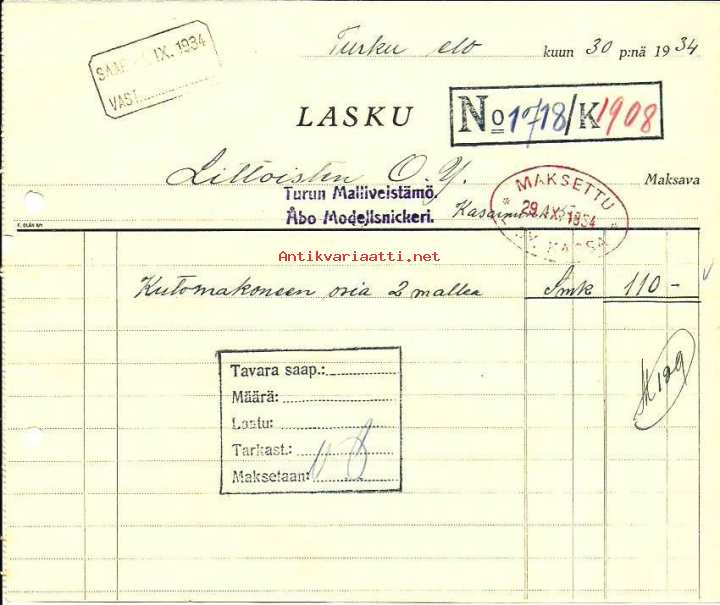 Turku elo kuun 30 p:nä 1934
SAAP. IX. 1934
VAST.
LASKU
No 1718/K1908
Littoisten O.Y. Maksava
Turun Malliveistämö.
Åbo Modellsnickeri.
MAKSETTU
29. IX. 1934
KASSA
Antikvariaatti.net
Kutomakoneen osia 2 mallea Smk 110 -
Tavara saap.:
Määrä:
Laatu:
Tarkast.:
Maksetaan: